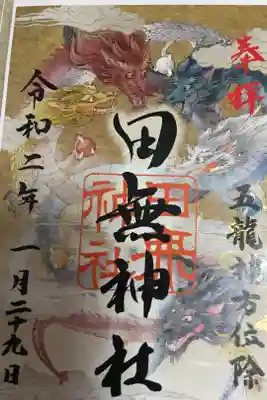 奉拝
五龍神方位除
田無神社
田無神社
令和二年
一月二十九日